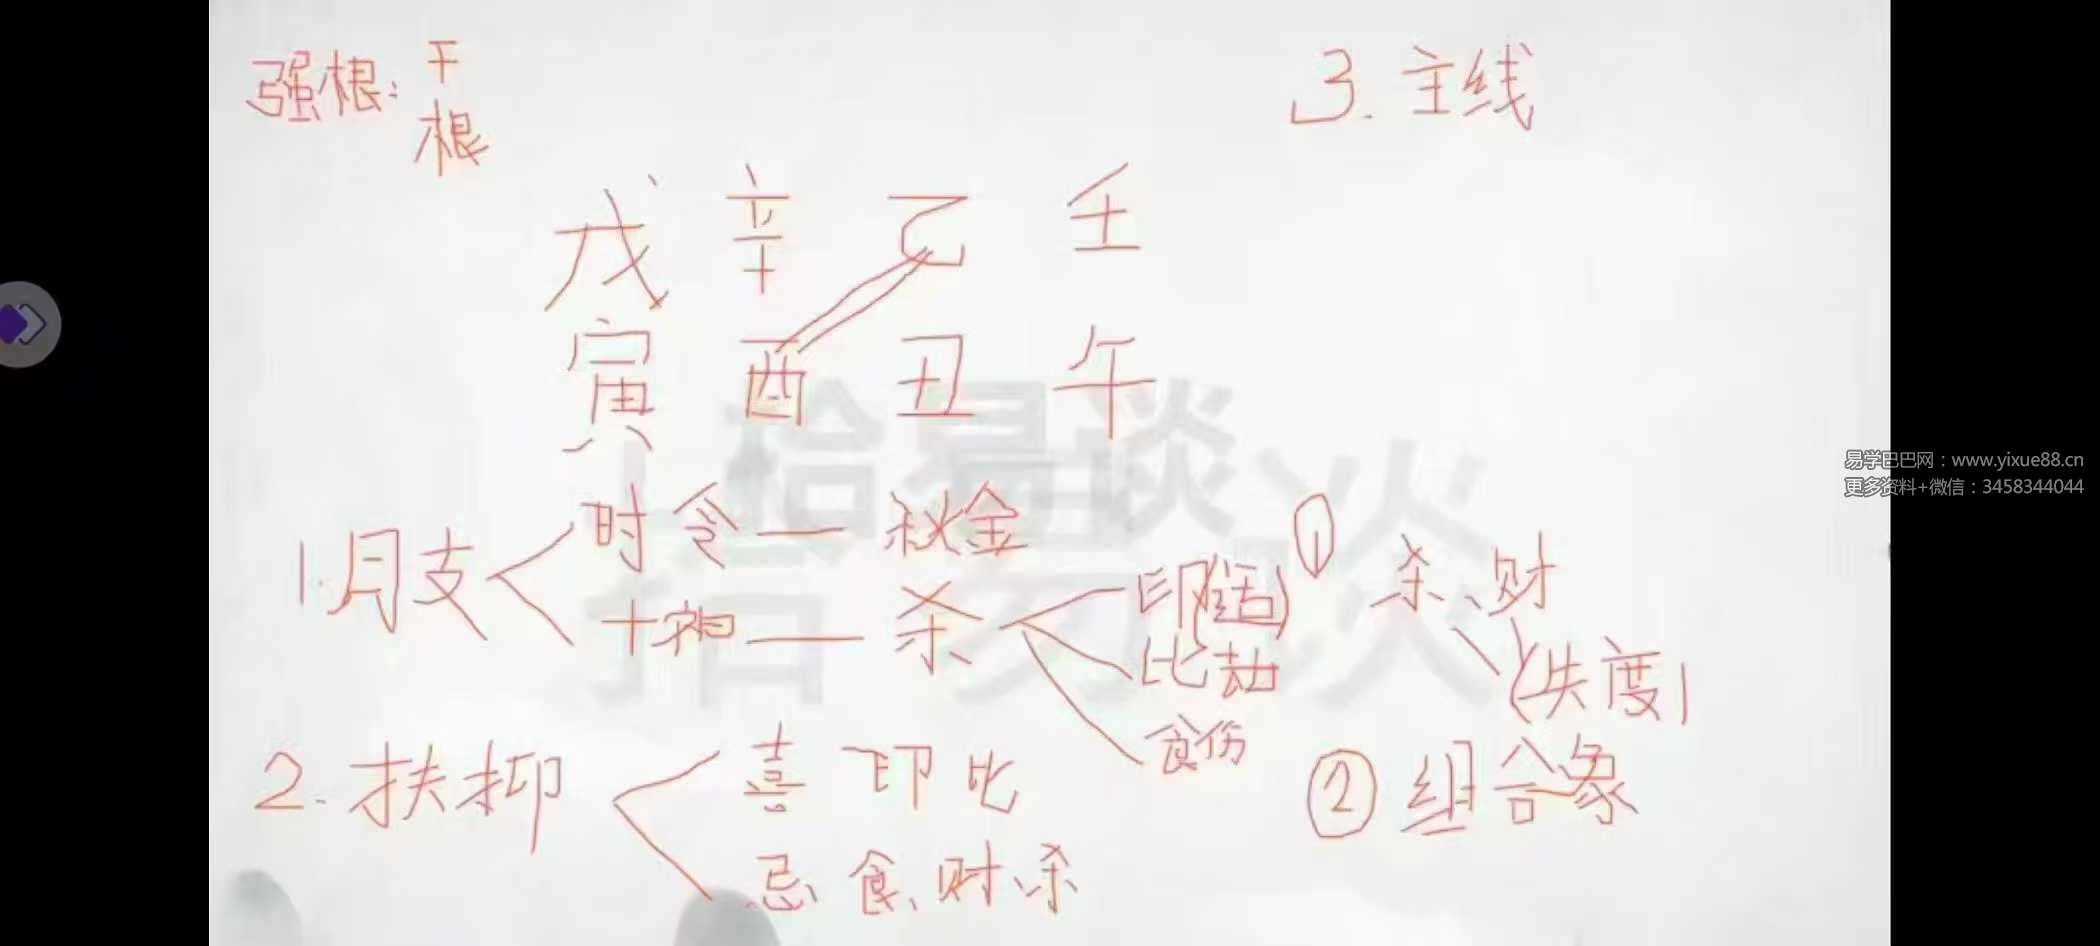 强根：干
根
3. 主线
戊 辛 乙 壬
寅 酉 丑 午
拾易谈
拾易谈
易学巴巴网：www.yixue88.cn
更多资料+微信：3458344044
1.月支
时令 — 秋金
十神 — 杀
印(适)
比劫
食伤
① 杀、财
(失度)
2.扶抑
喜 印比
忌 食、财、杀
② 组合象